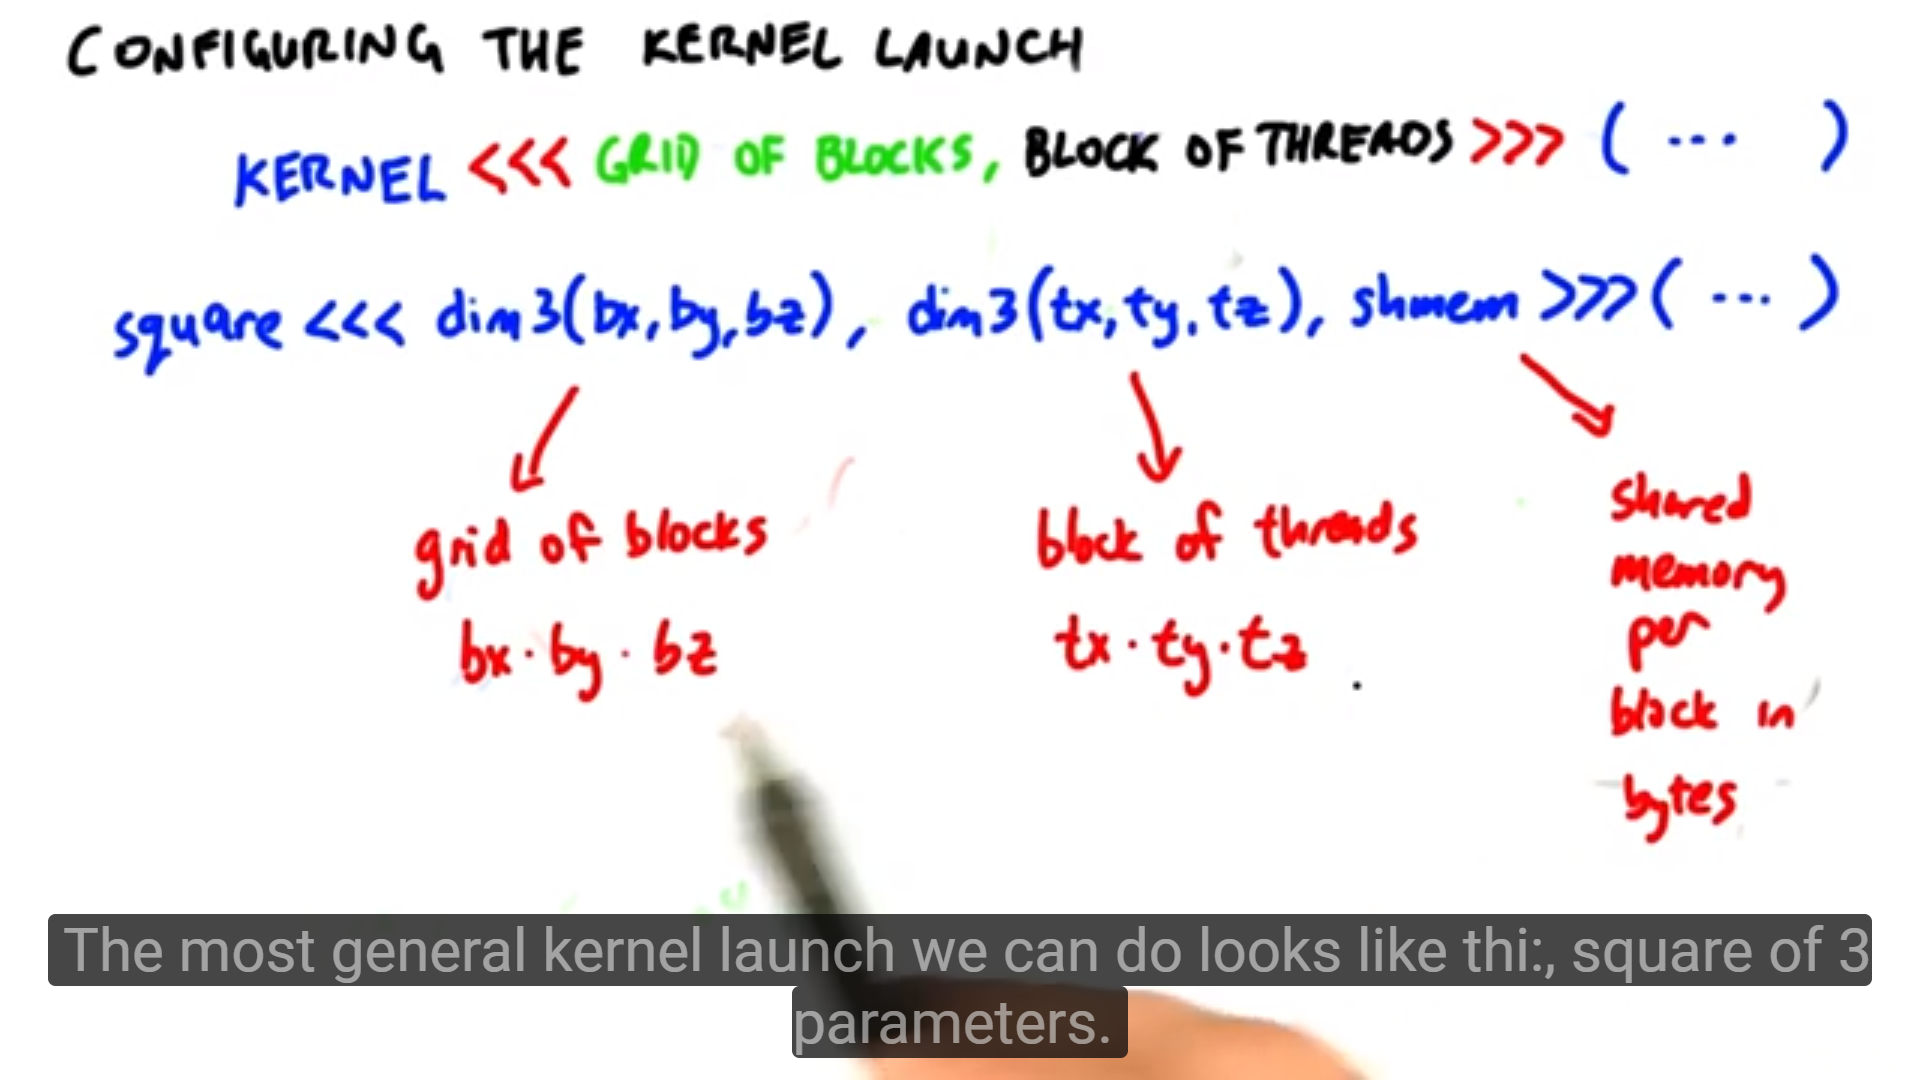 CONFIGURING THE KERNEL LAUNCH
KERNEL <<< GRID OF BLOCKS, BLOCK OF THREADS >>> ( ... )
square <<< dim3(bx,by,bz), dim3(tx,ty,tz), shmem >>> ( ... )
grid of blocks
bx · by · bz
block of threads
tx · ty · tz
shared
memory
per
block in
bytes
The most general kernel launch we can do looks like thi:, square of 3
parameters.